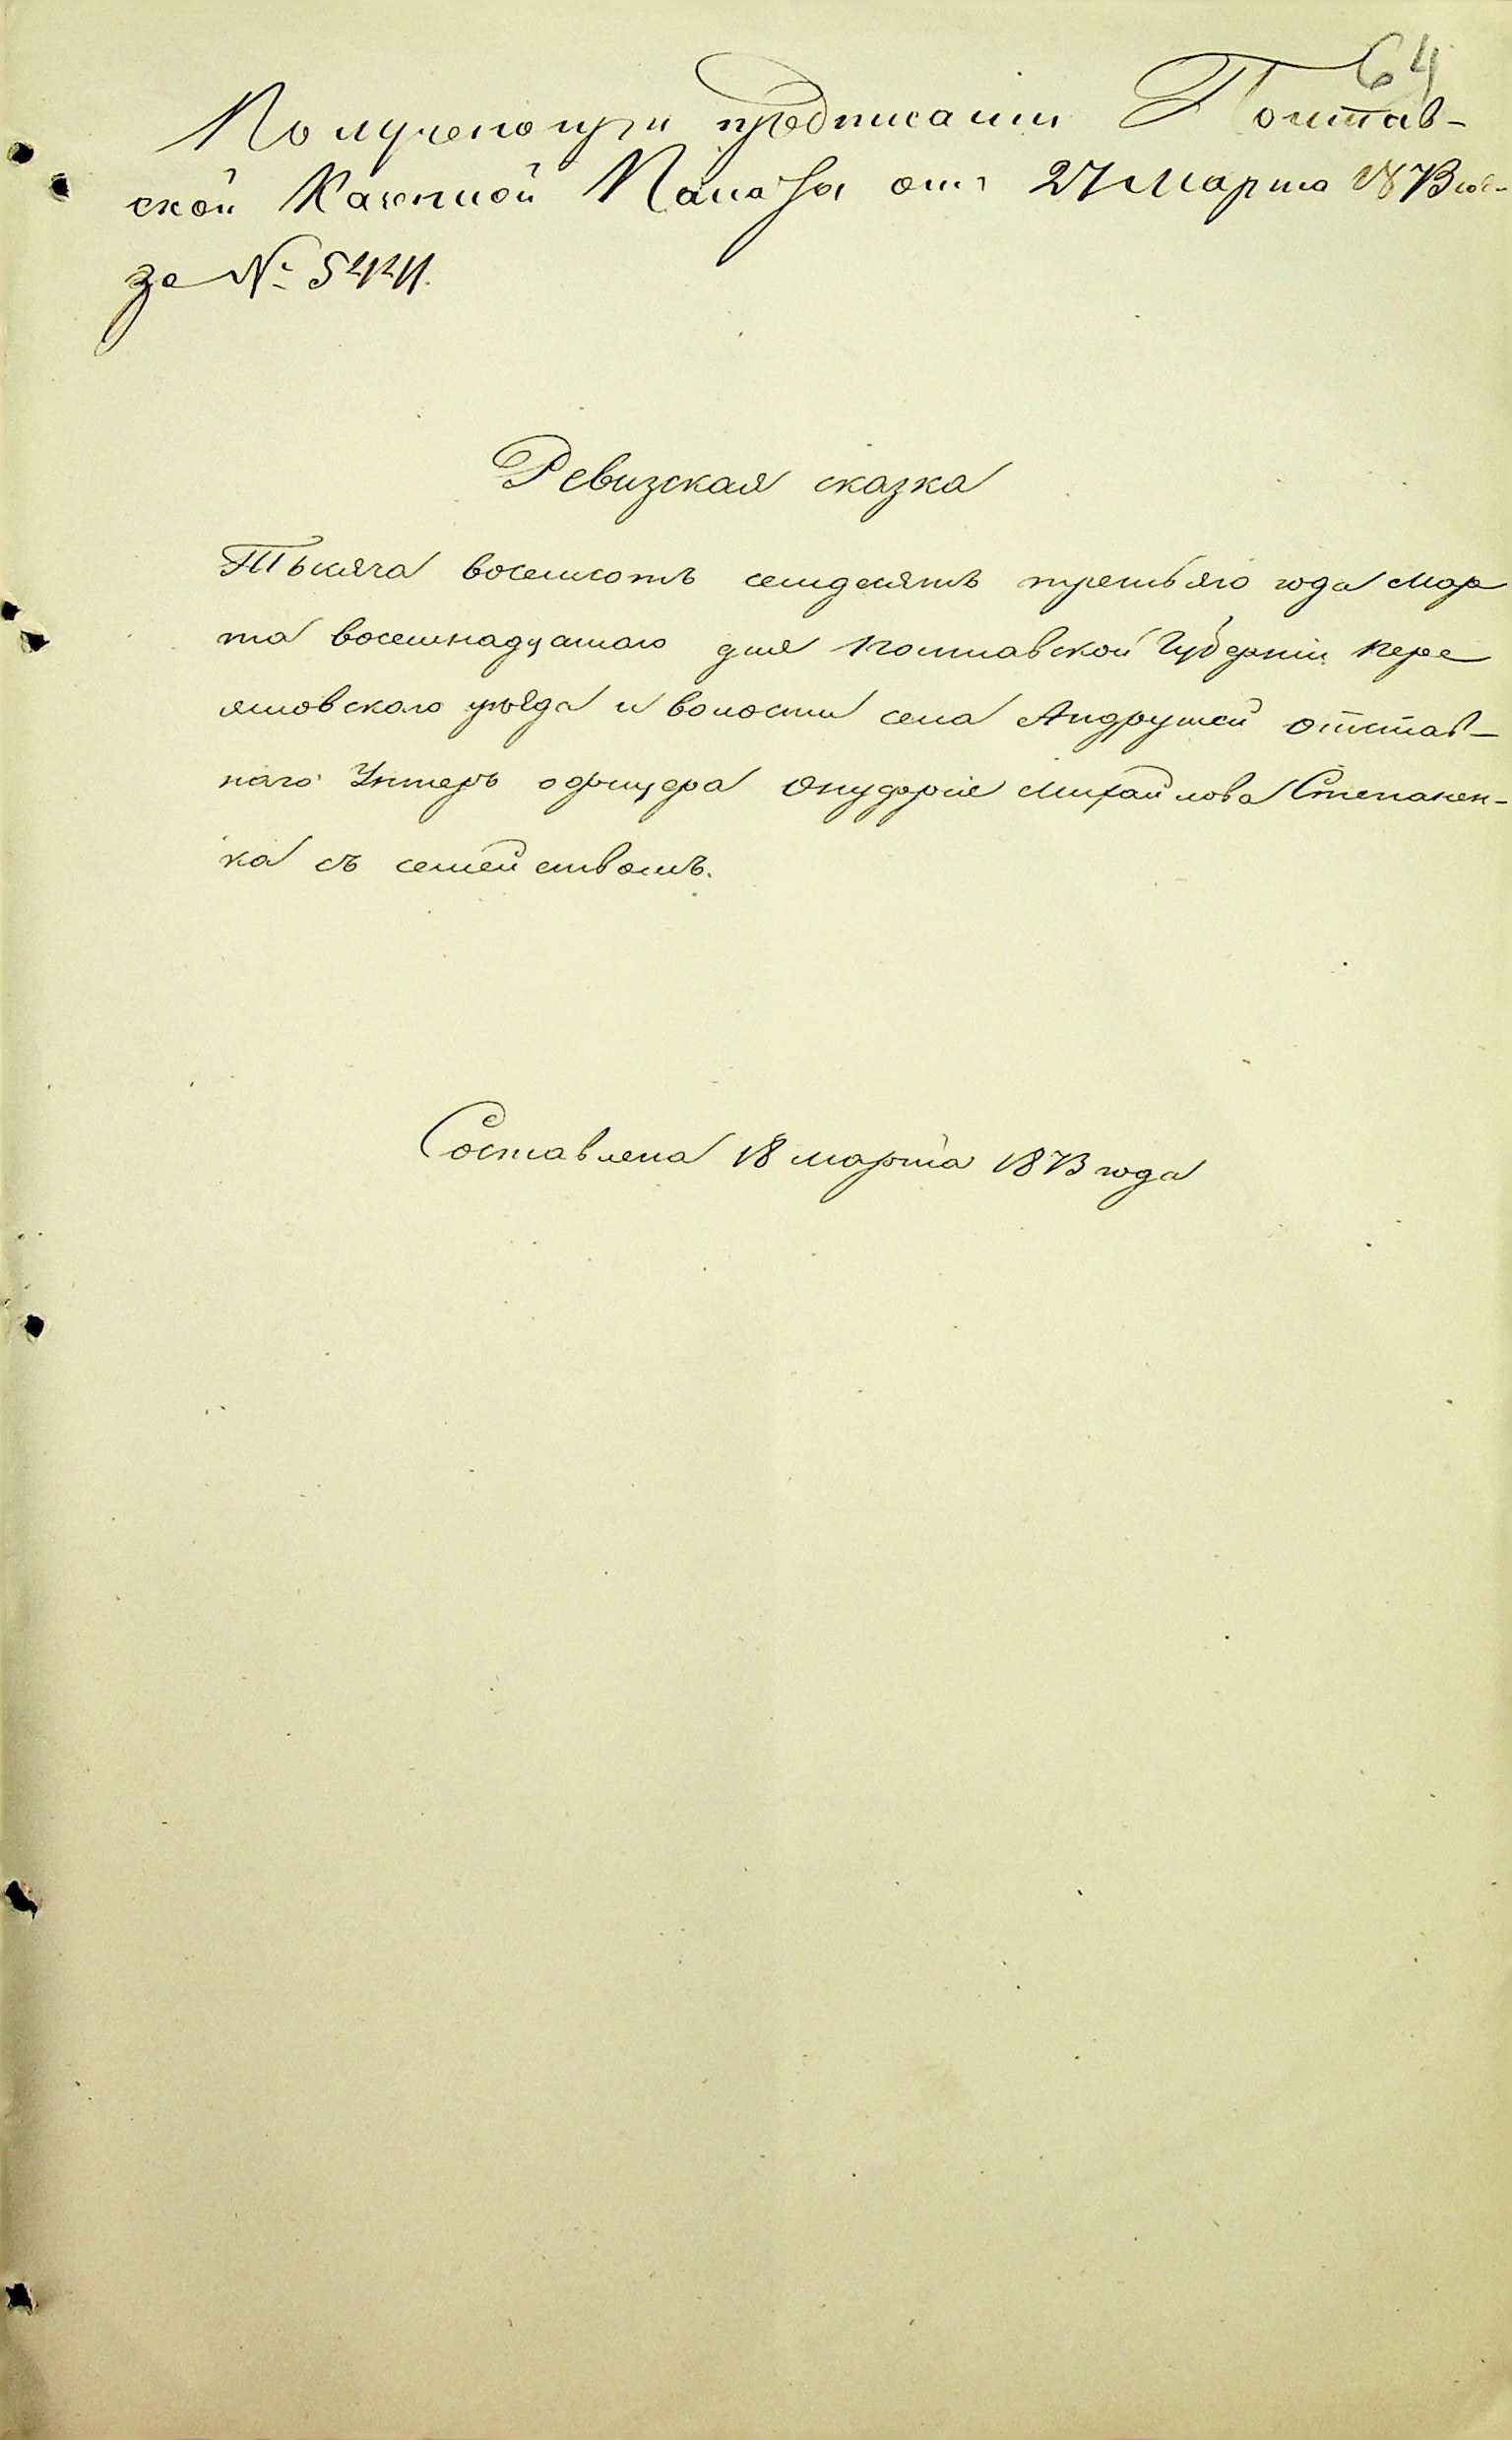 64
Получено при предписании Полтав-
ской Казенной Палаты от 27 Марта 1873 год-
за № 5424.
Ревизская сказка
Тысяча восемсотъ семдесятъ третьяго года Мар
та восемнадцатаго дня Полтавской Губерніи Пере
яловского уѣзда и волости села Андрушей отстав-
наго Унтеръ офицера Онуфрія Михайлова Степанен-
ка съ семействомъ.
Составлена 18 марта 1873 года